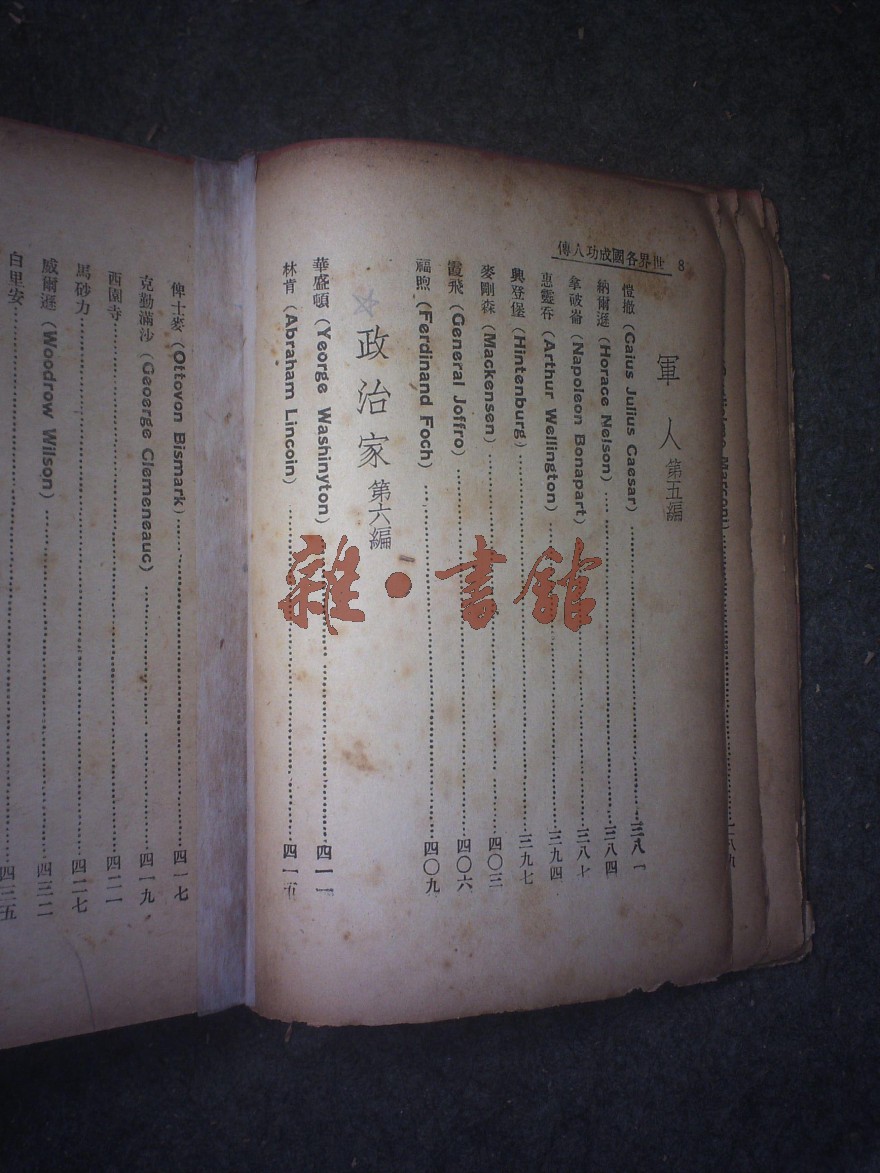 世界各國成功人傳 8
軍人 第五編
愷撒 (Gaius Julius Caesar) 三八一
納爾遜 (Horace Nelson) 三八四
拿破崙 (Napoleon Bonapart) 三八七
惠靈吞 (Arthur Wellington) 三九四
興登堡 (Hintenburg) 三九七
麥剛森 (Mackensen) 四〇三
霞飛 (General Joffro) 四〇六
福煦 (Ferdinand Foch) 四〇九
政治家 第六編
華盛頓 (Yeorge Washinyton) 四一一
林肯 (Abraham Lincoin) 四一五
俾士麥 (Ottovon Bismark) 四一七
克勤滿沙 (Geoerge Clemeneauc) 四一九
西園寺 四二一
馬砂力 四二七
威爾遜 (Woodrow Wilson) 四三二
白里安 四三五
雜·書館